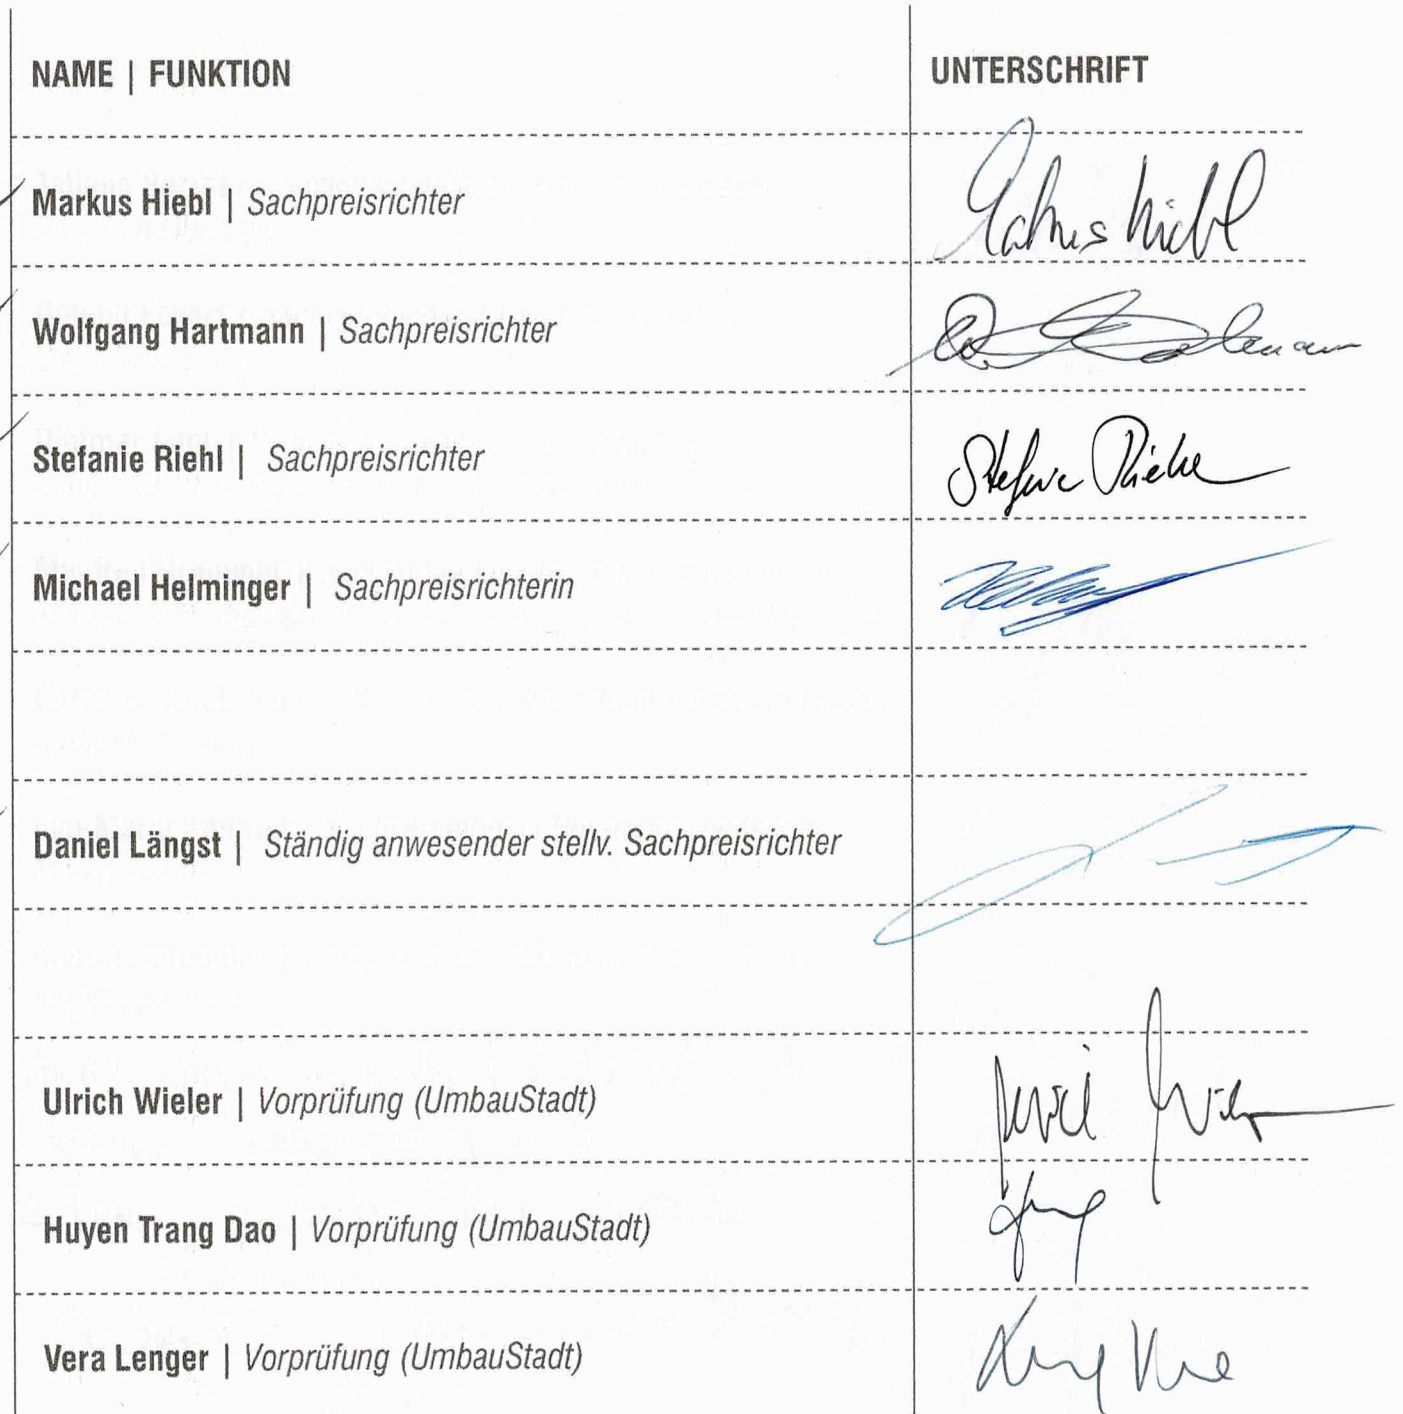 NAME | FUNKTION
UNTERSCHRIFT
Markus Hiebl | Sachpreisrichter
Markus Hiebl
Wolfgang Hartmann | Sachpreisrichter
Stefanie Riehl | Sachpreisrichter
Michael Helminger | Sachpreisrichterin
Daniel Längst | Ständig anwesender stellv. Sachpreisrichter
Ulrich Wieler | Vorprüfung (UmbauStadt)
Huyen Trang Dao | Vorprüfung (UmbauStadt)
Vera Lenger | Vorprüfung (UmbauStadt)